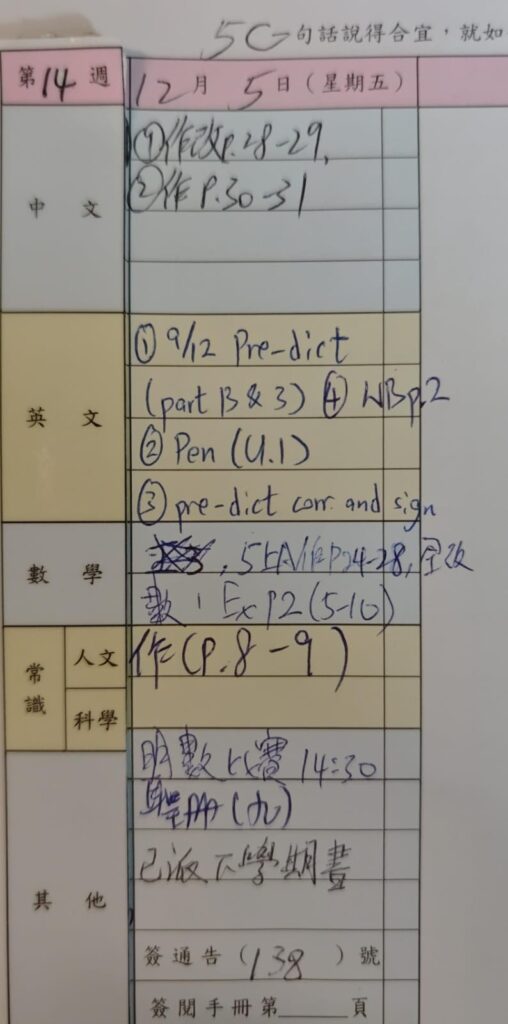 5G句話說得合宜，就如
第14週 12月5日（星期五）
中文 ①作改P.28-29,
②作 P.30-31
英文 ① 9/12 Pre-dict
(part B & 3) ④ WBp.2
② Pen (U.1)
③ pre-dict corr. and sign
數學 , 5上A作P24-28,全改
數: Ex p2 (5-10)
常識 人文 作(P.8-9)
科學
其他 明數比賽 14:30
聖冊(九)
已派下學期書
簽通告（138）號
簽閱手冊第______頁